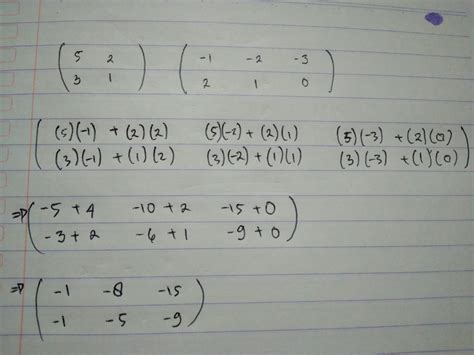 ( 5 2 ) ( -1 -2 -3 )
( 3 1 ) ( 2 1 0 )
( (5)(-1) + (2)(2) (5)(-2) + (2)(1) (5)(-3) + (2)(0) )
( (3)(-1) + (1)(2) (3)(-2) + (1)(1) (3)(-3) + (1)(0) )
⇒ ( -5 + 4 -10 + 2 -15 + 0 )
( -3 + 2 -6 + 1 -9 + 0 )
⇒ ( -1 -8 -15 )
( -1 -5 -9 )